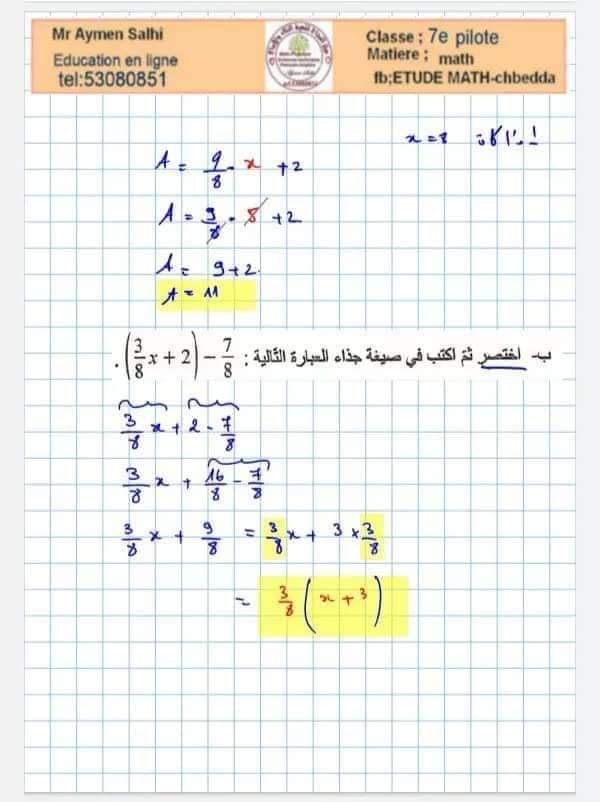 Mr Aymen Salhi
Education en ligne
tel:53080851
Classe ; 7e pilote
Matiere ; math
fb;ETUDE MATH-chbedda
إذا كانت x = 8
A = 9/8 · x + 2
A = 9/8 · 8 + 2
A = 9 + 2.
A = 11
ب- اختصر ثمّ اكتب في صيغة جذاء العبارة التّالية : (3/8 x + 2) − 7/8 .
3/8 x + 2 - 7/8
3/8 x + 16/8 - 7/8
3/8 x + 9/8 = 3/8 x + 3 × 3/8
= 3/8 (x + 3)